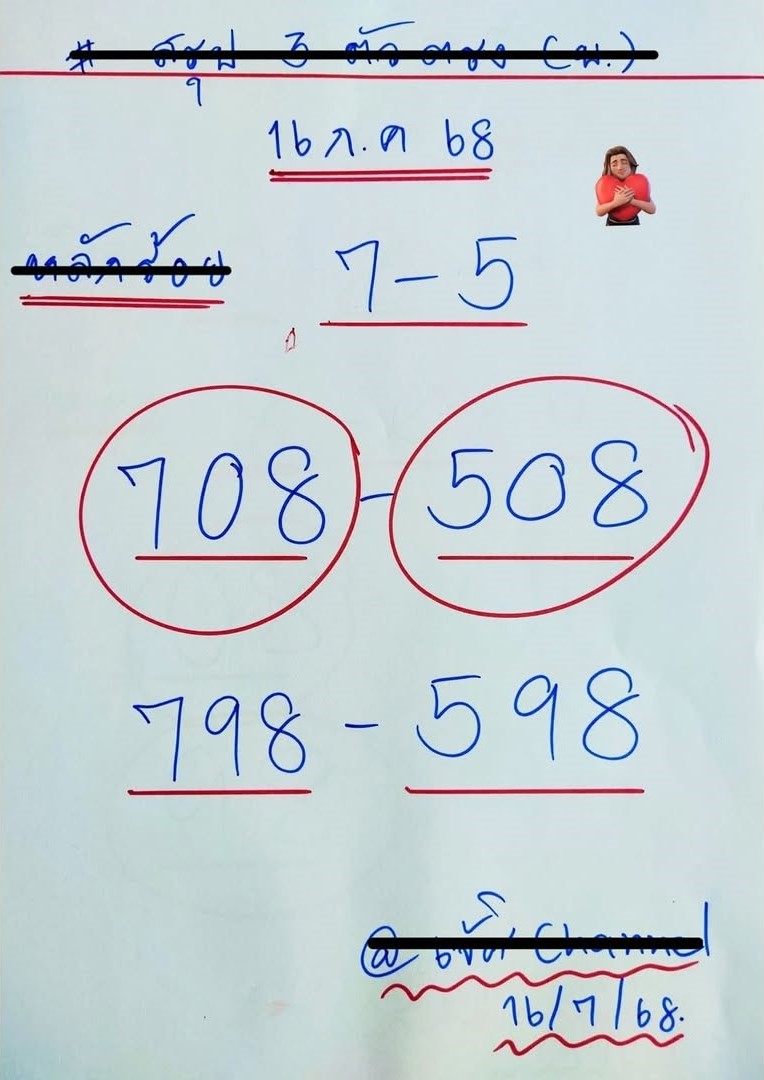 # สรุป 3 ตัวตรง (บ.)
16 ก.ค 68
หลักร้อย 7-5
708 - 508
798 - 598
@ Channel
16/7/68.